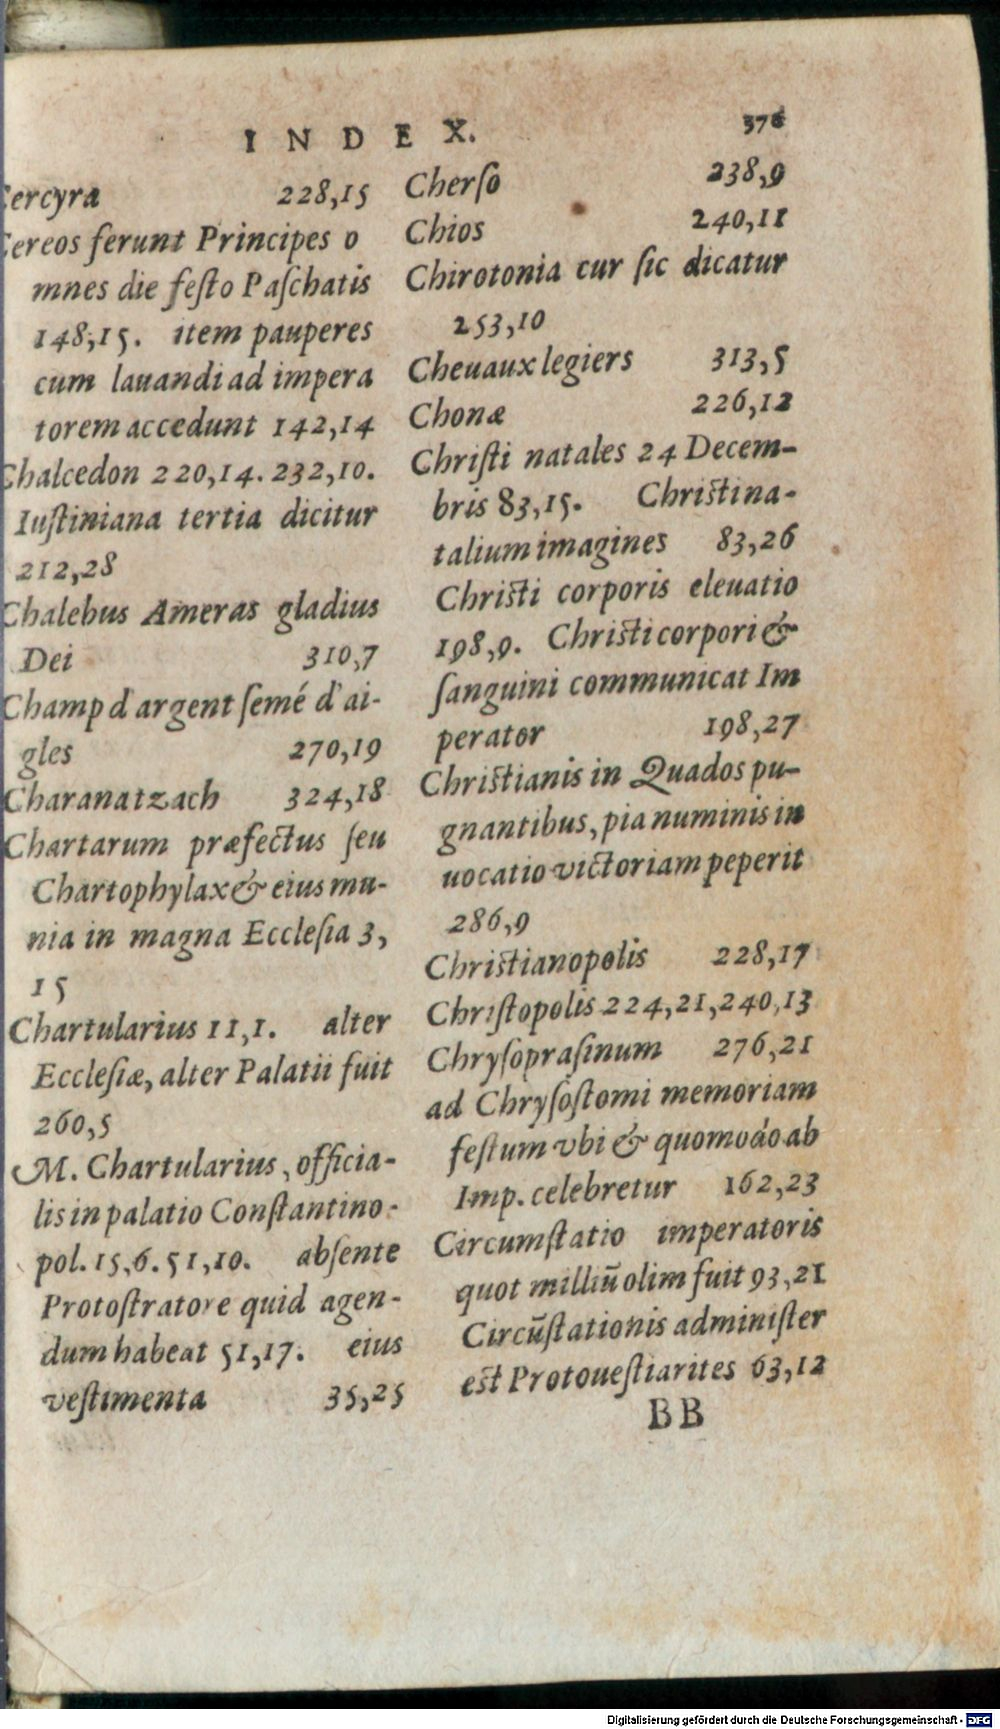 INDEX.
Cercyra 228,15
Cereos ferunt Principes o
mnes die feſto Paſchatis
148,15. item pauperes
cum lauandi ad impera
torem accedunt 142,14
Chalcedon 220,14. 232,10.
Iuſtiniana tertia dicitur
212,28
Chalebus Ameras gladius
Dei 310,7
Champ d'argent ſemé d'ai-
gles 270,19
Charanatzach 324,18
Chartarum præfectus ſeu
Chartophylax & eius mu-
nia in magna Eccleſia 3,
15
Chartularius 11,1. alter
Eccleſiæ, alter Palatii fuit
260,5
M. Chartularius, officia-
lis in palatio Conſtantino-
pol. 15,6. 51,10. abſente
Protoſtratore quid agen-
dum habeat 51,17. eius
veſtimenta 35,25
Cherſo 238,9
Chios 240,11
Chirotonia cur ſic dicatur
253,10
Cheuaux legiers 313,5
Chonæ 226,12
Chriſti natales 24 Decem-
bris 83,15. Chriſti na-
talium imagines 83,26
Chriſti corporis eleuatio
198,9. Chriſti corpori &
ſanguini communicat Im
perator 198,27
Chriſtianis in Quados pu-
gnantibus, pia numinis in
uocatio victoriam peperit
286,9
Chriſtianopolis 228,17
Chriſtopolis 224,21,240,13
Chryſopraſinum 276,21
ad Chryſoſtomi memoriam
feſtum vbi & quomodo ab
Imp. celebretur 162,23
Circumſtatio imperatoris
quot milliũ olim fuit 93,21
Circũſtationis adminiſter
eſt Protoueſtiarites 63,12
BB
Digitalisierung gefördert durch die Deutsche Forschungsgemeinschaft - DFG